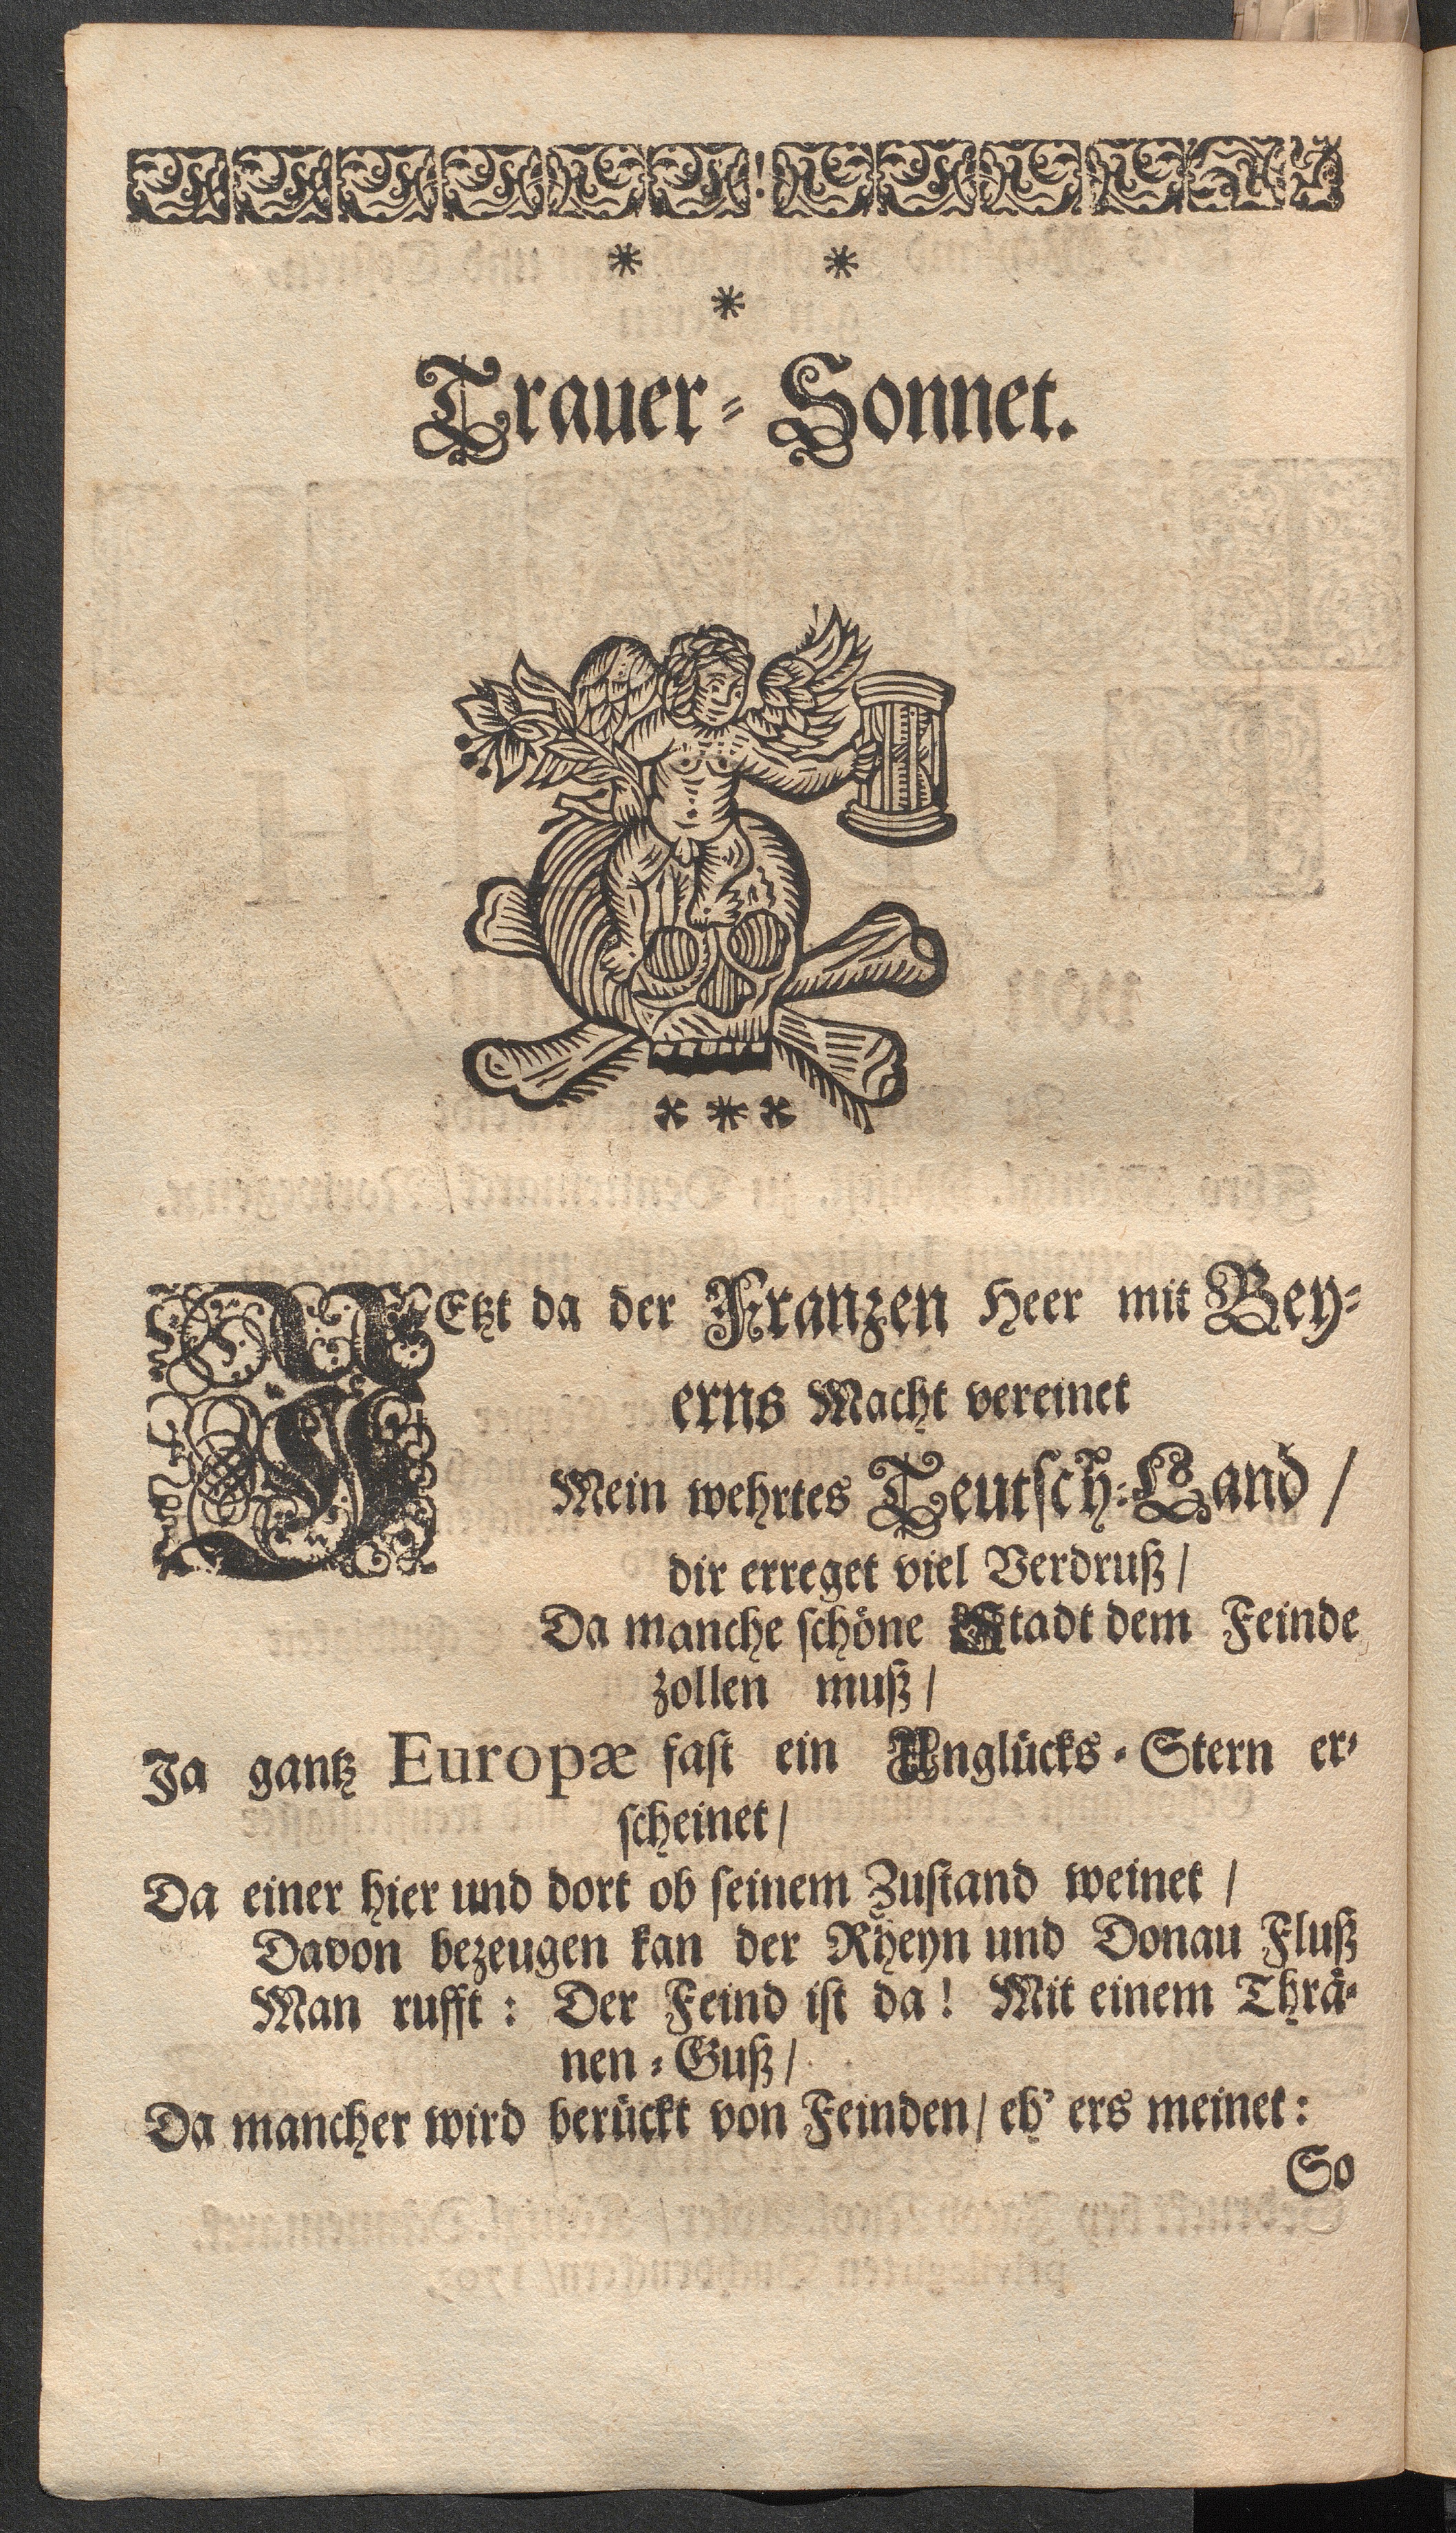 * *
*
Trauer-Sonnet.
* * *
JEtzt da der Franzen Heer mit Bey-
erns Macht vereinet
Mein wehrtes Teutsch-Land /
dir erreget viel Verdruß /
Da manche schöne Stadt dem Feinde
zollen muß /
Ja gantz Europæ fast ein Unglücks-Stern er-
scheinet /
Da einer hier und dort ob seinem Zustand weinet /
Davon bezeugen kan der Rheyn und Donau Fluß
Man rufft: Der Feind ist da! Mit einem Thrä-
nen-Guß /
Da mancher wird berückt von Feinden / eh' ers meinet:
So